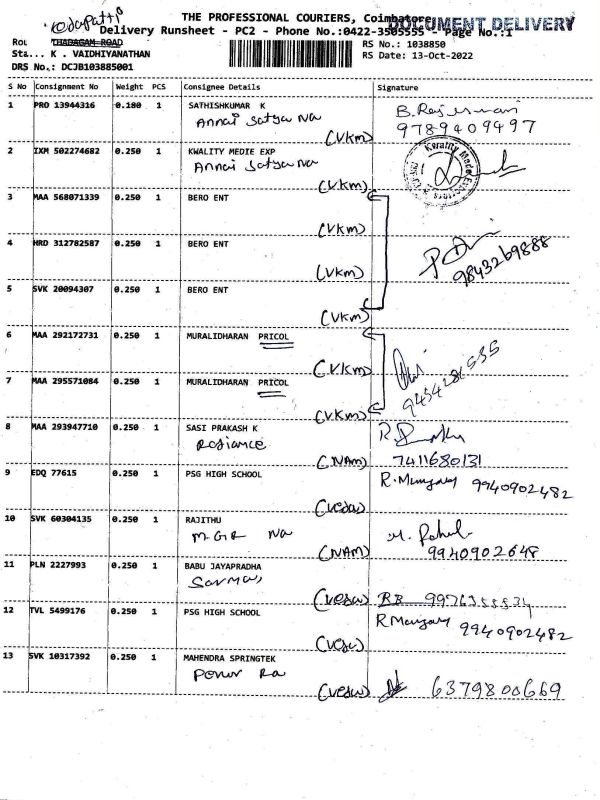 THE PROFESSIONAL COURIERS, Coimbatore
DOCUMENT DELIVERY
Delivery Runsheet - PC2 - Phone No.:0422-3505555 Page No.:1
THADAGAM ROAD
RS No.: 1038850
Sta... K . VAIDHIYANATHAN
RS Date: 13-Oct-2022
DRS No.: DCJB103885001
S No Consignment No Weight PCS Consignee Details Signature
1 PRO 13944316 0.180 1 SATHISHKUMAR K
Annai Satya Na
(VKm) 9789409497
2 IXM 502274682 0.250 1 KWALITY MEDIE EXP
Annai Satya Na
(VKm)
3 MAA 568071339 0.250 1 BERO ENT
(VKm)
4 HRD 312782587 0.250 1 BERO ENT
(VKm) 9843269888
5 SVK 20094307 0.250 1 BERO ENT
(VKm)
6 MAA 292172731 0.250 1 MURALIDHARAN PRICOL
(VKm)
7 MAA 295571084 0.250 1 MURALIDHARAN PRICOL
(VKm)
8 MAA 293947710 0.250 1 SASI PRAKASH K
(NAM) 7411680131
9 EDQ 77615 0.250 1 PSG HIGH SCHOOL
9940902482
10 SVK 60304135 0.250 1 RAJITHU
M.GR Na M. Rahul
(NAM) 9940902648
11 PLN 2227993 0.250 1 BABU JAYAPRADHA
12 TVL 5499176 0.250 1 PSG HIGH SCHOOL
9940902482
13 SVK 10317392 0.250 1 MAHENDRA SPRINGTEK
6379800669